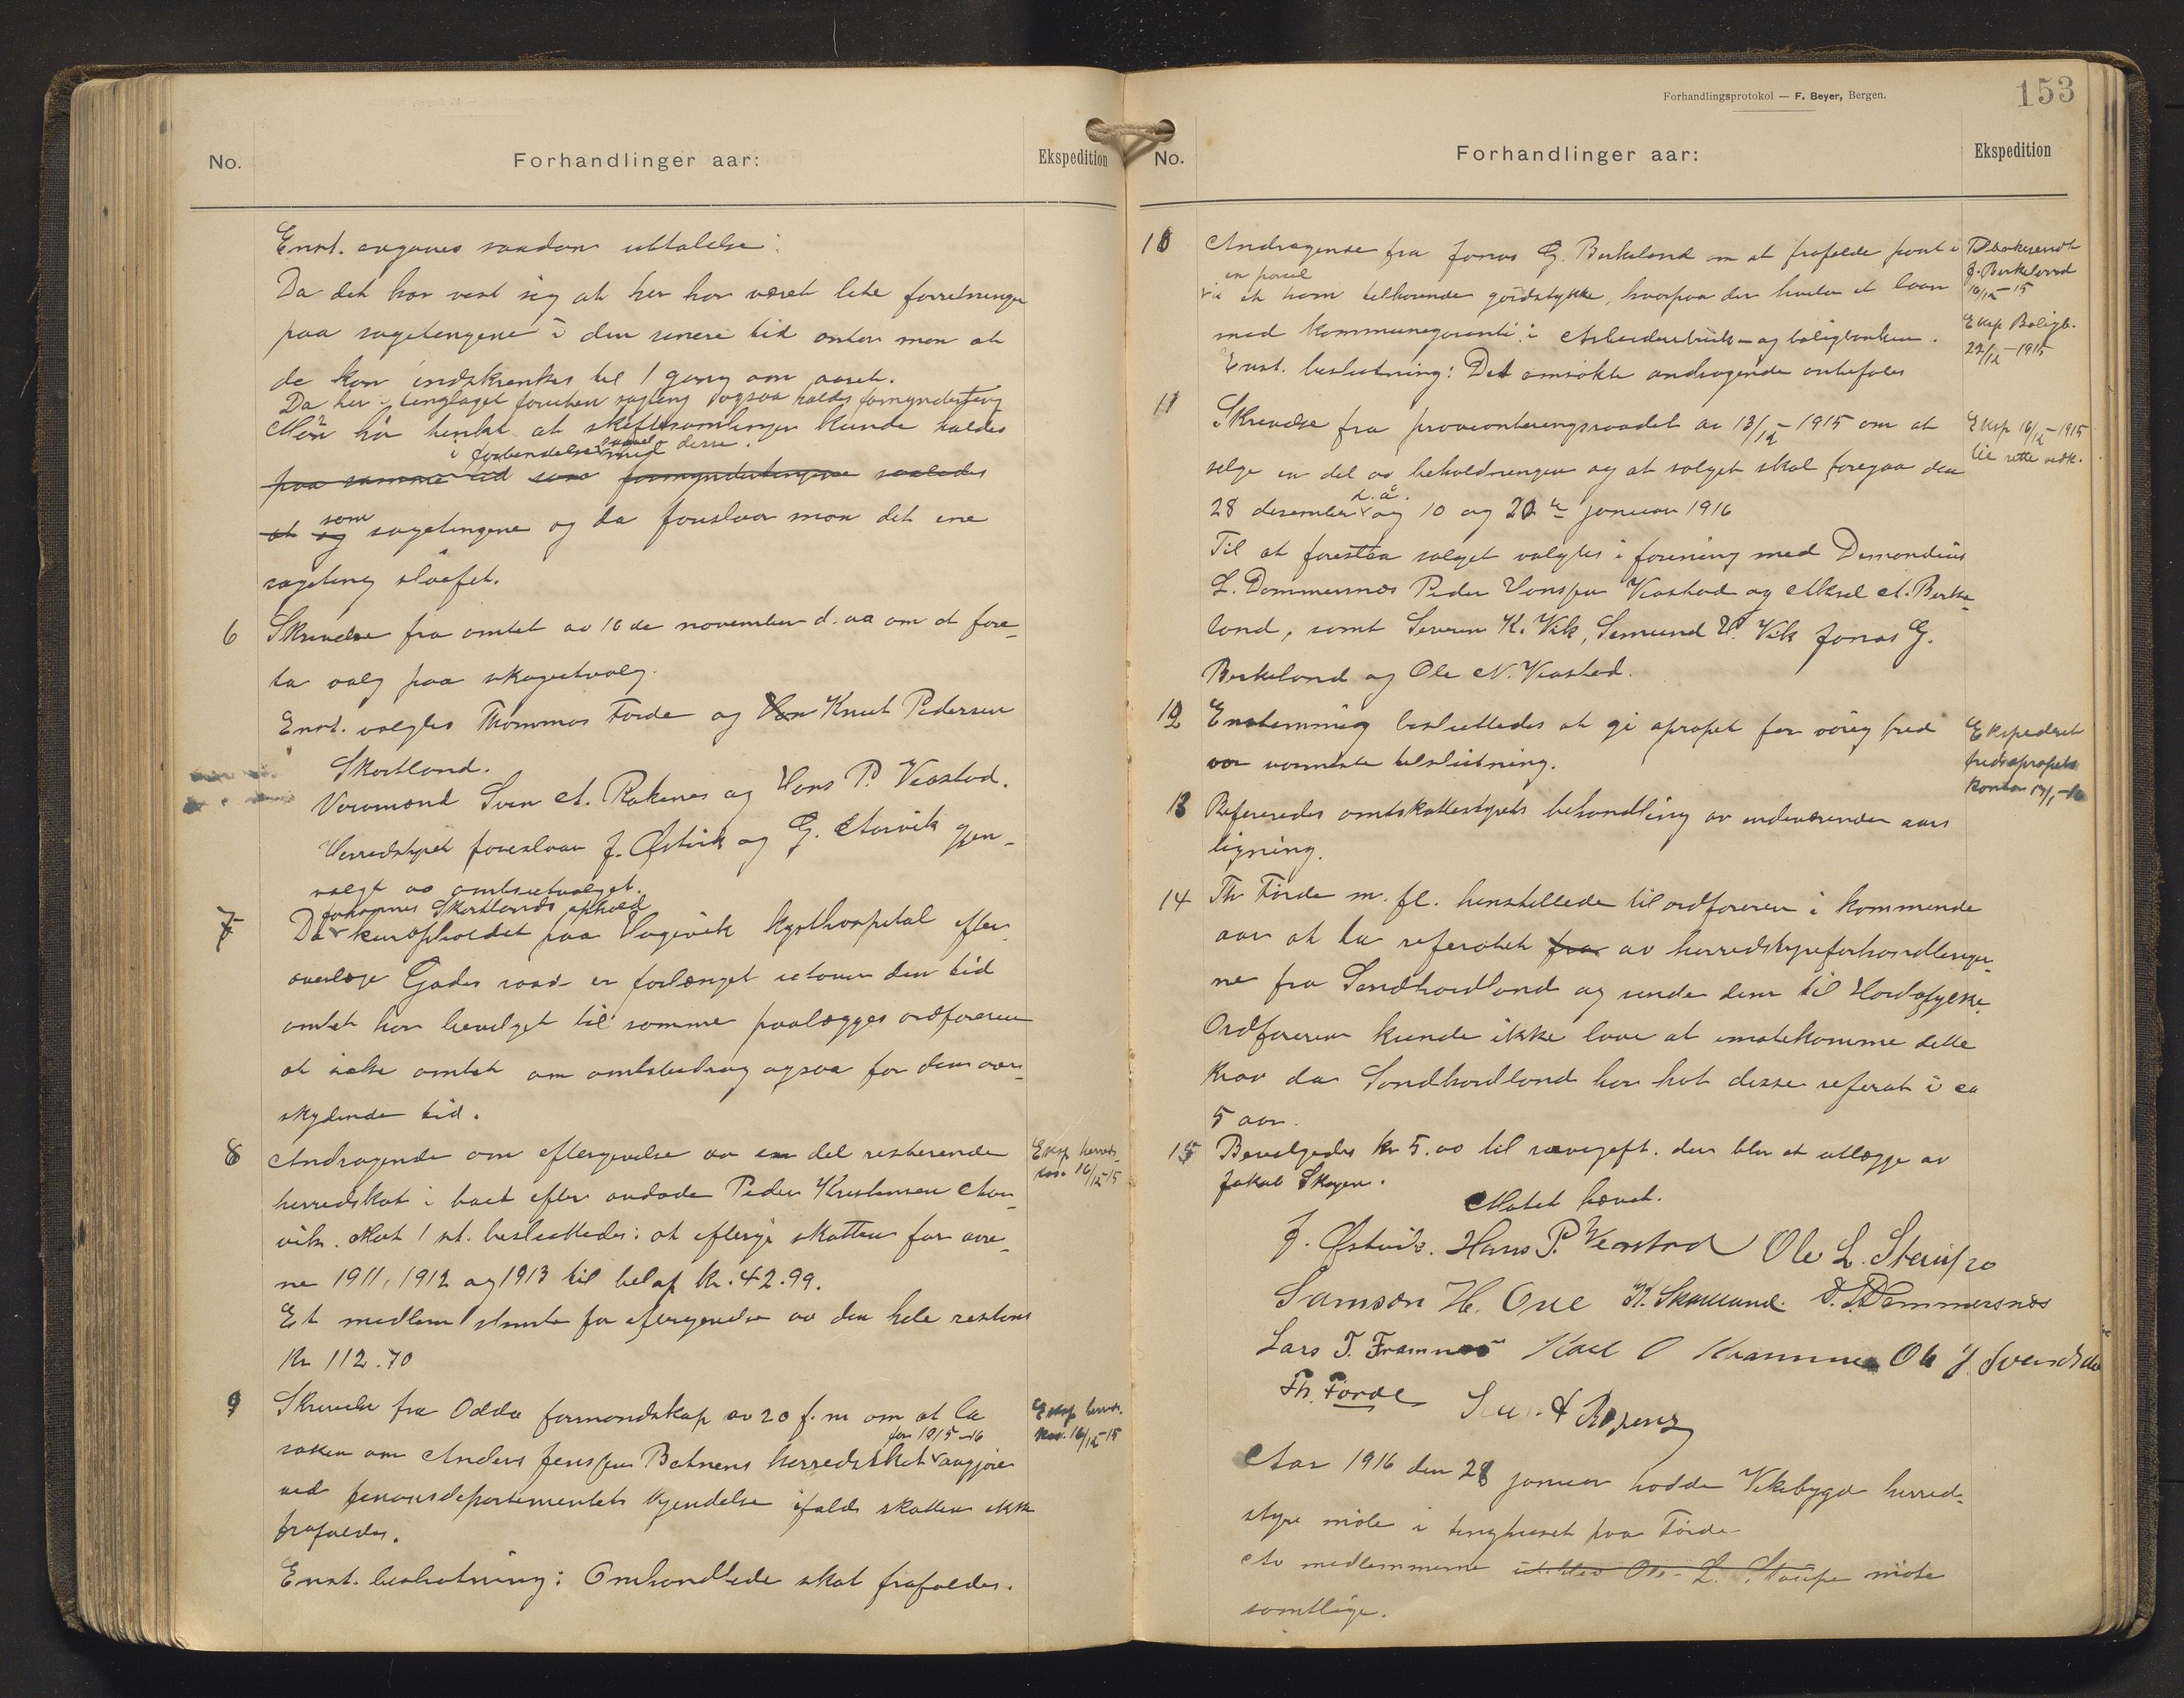 No.
Forhandlinger aar:
Ekspedition
Enst. avgaves saadan uttalelse:
Da det har vist sig at her har været lite forretninger
paa sagetingene i den senere tid anser man at
de kan indskrænkes til 1 gang om aaret.
Da her i tinglaget foruten sagting ogsaa holdes formynderting
Man har tænkt at skiftesamlinger kunde holdes
i forbindelse med disse.
paa samme tid som formyndertingene saaledes
at og som sagetingene og da foreslaar man det ene
sageting sløifet.
6 Skrivelse fra amtet av 10de november d. aa om at fore-
ta valg paa skogutvalg.
Enst. valgtes Thommas Førde og Knut Pedersen
Skartland.
Varamænd Sven A. Røkenes og Hans P. Veastad.
Herredstyret foreslaar J. Østvik og G. Aarvik gjen-
valgt av amtsutvalget.
7 Da Johannes Skartlands ophold
kuropholdet paa Hagevik Kysthospital efter
overlæge Gades raad er forlænget utover den tid
amtet har bevilget til samme paalægges ordføreren
at søke amtet om amtsbidrag ogsaa for den over-
skytende tid.
8 Andragende om eftergivelse av en del resterende
herredskat i boet efter avdøde Peder Kristensen Aar-
vik. Mot 1 st. besluttedes: at eftergi skatten for aare-
ne 1911, 1912 og 1913 til beløp kr. 42.99.
Et medlem stemte for eftergivelse av den hele restans
Kr 112.70
Eksp herreds-
kas. 16/12-15
9 Skrivelse fra Odda formandskap av 20 f. m om at la
saken om Anders Jenssen Botnens herredskat for 1915-16 avgjøre
ved finansdepartementets kjendelse ifald skatten ikke
frafaldes.
Enst. beslutning: Omhandlede skat frafaldes.
Eksp herreds.
kas. 16/12-15
Forhandlingsprotokol — F. Beyer, Bergen.
153
No.
Forhandlinger aar:
Ekspedition
10 Andragende fra Jonas G. Birkeland om at frafalde pant i
en parsel
i et ham tilhørende gårdstykke, hvorpaa der hviler et laan
med kommunegaranti i Arbeiderbruk- og boligbanken.
Enst. beslutning: Det omsøkte andragende anbefales
Tilbakesendt
J. Birkeland
16/12-15
Eksp Boligb.
22/12-1915
11 Skrivelse fra provianteringsraadet av 13/12-1915 om at
selge en del av beholdningen og at salget skal foregaa den
28 desember d. å. og 10 og 20de januar 1916
Til at forestaa salget valgtes i forening med Damondius
L. Dommersnes Peder Hanssen Veastad og Aksel A. Birke-
land, samt Severin K. Vik, Semund H. Vik Jonas G.
Birkeland og Ole N. Veastad.
Eksp 16/12-1915
til rette vedk.
12 Enstemmig besluttedes at gi opropet for varig fred
vor varmeste tilslutning.
Ekspederet
fredsopropets
kontor 17/1-16
13 Refereredes amtskattestyrets behandling av indeværende aars
ligning.
14 Th Førde m. fl. henstillede til ordføreren i kommende
aar at ta referatet fra av herredstyreforhandlinger-
ne fra Søndhordland og sende dem til Hordafylke.
Ordføreren kunde ikke love at imøtekomme dette
krav da Søndhordland har hat disse referat i ca
5 aar.
15 Bevilgedes kr 5.00 til rævegift. den blir at utlægge av
Jakob Skogen.
Møtet hævet.
J. Østvik. Hans P. Veastad Ole L. Staupe
Samson H. Øve K. Skartland. D. L. Dommersnes
Lars T. Framnes Karl O Ole J.
Th. Førde
Aar 1916 den 28 januar hadde Vikebygd herred-
styre møte i tinghuset paa Førde
Av medlemmerne uteblev Ole L. Staupe møtte
samtlige.